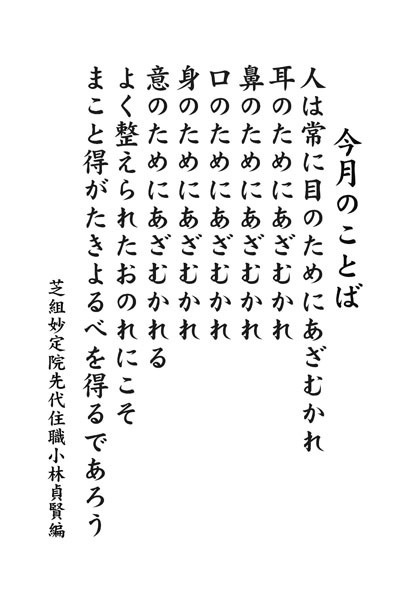 今月のことば
人は常に目のためにあざむかれ
耳のためにあざむかれ
鼻のためにあざむかれ
口のためにあざむかれ
身のためにあざむかれ
意のためにあざむかれる
よく整えられたおのれにこそ
まこと得がたきよるべを得るであろう
芝組妙定院先代住職小林貞賢編